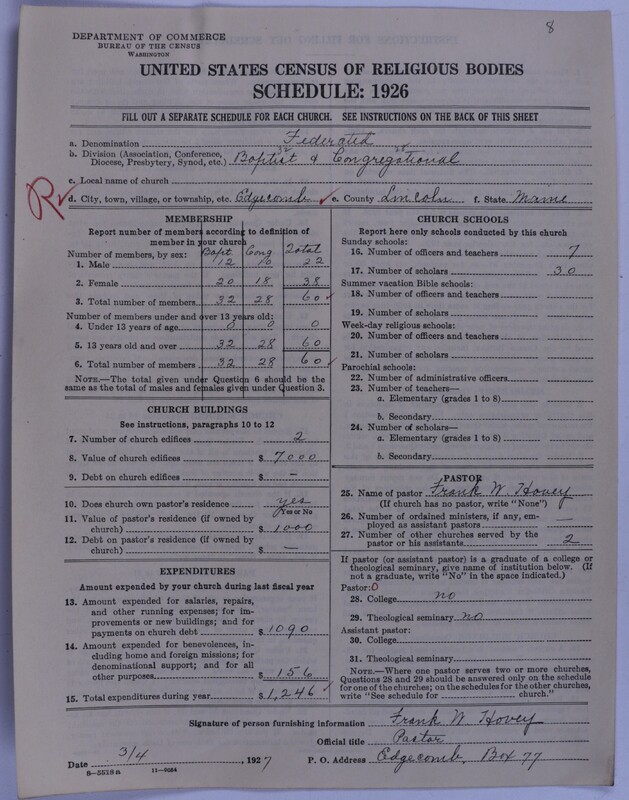 8
DEPARTMENT OF COMMERCE
BUREAU OF THE CENSUS
WASHINGTON
UNITED STATES CENSUS OF RELIGIOUS BODIES
SCHEDULE: 1926
FILL OUT A SEPARATE SCHEDULE FOR EACH CHURCH. SEE INSTRUCTIONS ON THE BACK OF THIS SHEET
a. Denomination Federated
32 28
b. Division (Association, Conference, Diocese, Presbytery, Synod, etc.) Baptist & Congregational
c. Local name of church
R ✓ d. City, town, village, or township, etc. Edgecomb ✓ e. County Lincoln f. State Maine
MEMBERSHIP
Report number of members according to definition of
member in your church
Number of members, by sex: Bapt Cong Total
1. Male 12 10 22
2. Female 20 18 38
3. Total number of members 32 28 60 ✓
Number of members under and over 13 years old:
4. Under 13 years of age 0 0 0
5. 13 years old and over 32 28 60
6. Total number of members 32 28 60 ✓
NOTE.—The total given under Question 6 should be the
same as the total of males and females given under Question 3.
CHURCH BUILDINGS
See instructions, paragraphs 10 to 12
7. Number of church edifices 2
8. Value of church edifices $ 7000
9. Debt on church edifices $ —
10. Does church own pastor's residence yes
Yes or No
11. Value of pastor's residence (if owned by
church) $ 1000
12. Debt on pastor's residence (if owned by
church) $ —
EXPENDITURES
Amount expended by your church during last fiscal year
13. Amount expended for salaries, repairs,
and other running expenses; for im-
provements or new buildings; and for
payments on church debt $ 1090
14. Amount expended for benevolences, in-
cluding home and foreign missions; for
denominational support; and for all
other purposes $ 156
15. Total expenditures during year $ 1,246 ✓
CHURCH SCHOOLS
Report here only schools conducted by this church
Sunday schools:
16. Number of officers and teachers 7
17. Number of scholars 30
Summer vacation Bible schools:
18. Number of officers and teachers
19. Number of scholars
Week-day religious schools:
20. Number of officers and teachers
21. Number of scholars
Parochial schools:
22. Number of administrative officers
23. Number of teachers—
a. Elementary (grades 1 to 8)
b. Secondary
24. Number of scholars—
a. Elementary (grades 1 to 8)
b. Secondary
PASTOR
25. Name of pastor Frank W. Hovey
(If church has no pastor, write "None")
26. Number of ordained ministers, if any, em-
ployed as assistant pastors —
27. Number of other churches served by the
pastor or his assistants 2
If pastor (or assistant pastor) is a graduate of a college or
theological seminary, give name of institution below. (If
not a graduate, write "No" in the space indicated.)
Pastor: 0
28. College no
29. Theological seminary no
Assistant pastor:
30. College
31. Theological seminary
NOTE.—Where one pastor serves two or more churches,
Questions 28 and 29 should be answered only on the schedule
for one of the churches; on the schedules for the other churches,
write "See schedule for church."
Signature of person furnishing information Frank W Hovey
Official title Pastor
Date 3/4, 1927 P. O. Address Edgecomb, Box 77
8—5518a 11—9034